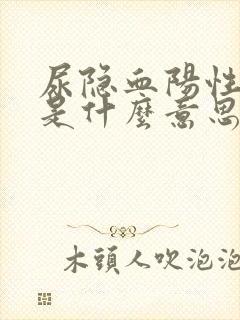 尿隐血陽性
是什麼意思
木頭人吹泡泡